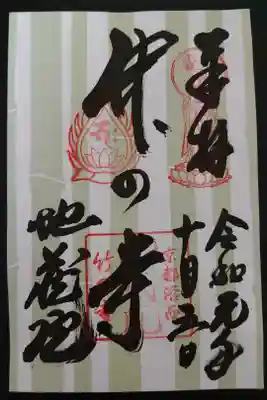 奉拝
令和元年
十月日
竹の寺
地蔵院
京都洛西
竹